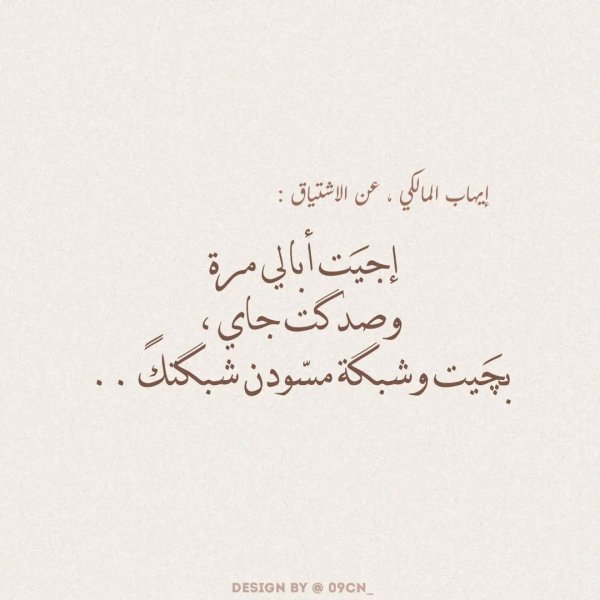 إيهاب المالكي ، عن الاشتياق :
إجيَت أبالي مرة
وصدگت جاي ،
بچَيت وشبگة مسّودن شبگتكً . .
DESIGN BY @ 09CN_